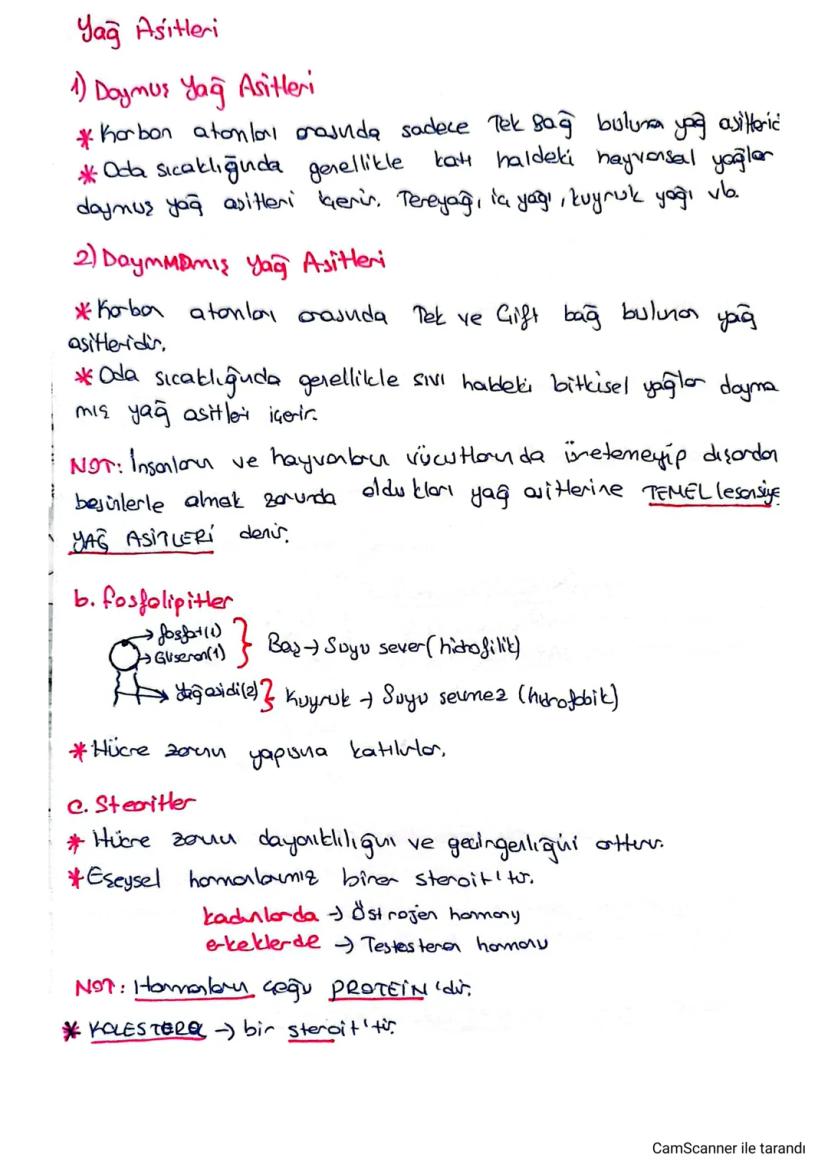 Yağ Asitleri
1) Doymuş Yağ Asitleri
* Karbon atomları arasında sadece Tek Bağ bulunan yağ asitleridi
* Oda sıcaklığında genellikle katı haldeki hayvansal yağlar
doymuş yağ asitleri içerir. Tereyağı, iç yağı, kuyruk yağı vb.
2) Doymamış Yağ Asitleri
* Karbon atomları arasında Tek ve Çift bağ bulunan yağ
asitleridir.
* Oda sıcaklığında genellikle sıvı haldeki bitkisel yağlar doyma
mış yağ asitleri içerir.
NOT: İnsanların ve hayvanların vücutlarında üretemeyip dışardan
besinlerle almak zorunda oldukları yağ asitlerine TEMEL (esansiye
YAĞ ASİTLERİ denir.
b. Fosfolipitler
→ fosfat(1)
→ Gliserol(1) } Baş → Suyu sever (hidrofilik)
→ Yağ asidi(2) } Kuyruk → Suyu sevmez (hidrofobik)
* Hücre zarının yapısına katılırlar.
c. Steroitler
* Hücre zarının dayanıklılığını ve geçirgenliğini arttırır.
* Eşeysel hormonlarımız birer steroit'tir.
kadınlarda → Östrojen hormonu
erkeklerde → Testesteron hormonu
NOT: Hormonların çoğu PROTEİN'dir.
* KOLESTEROL → bir steroit'tir.
CamScanner ile tarandı